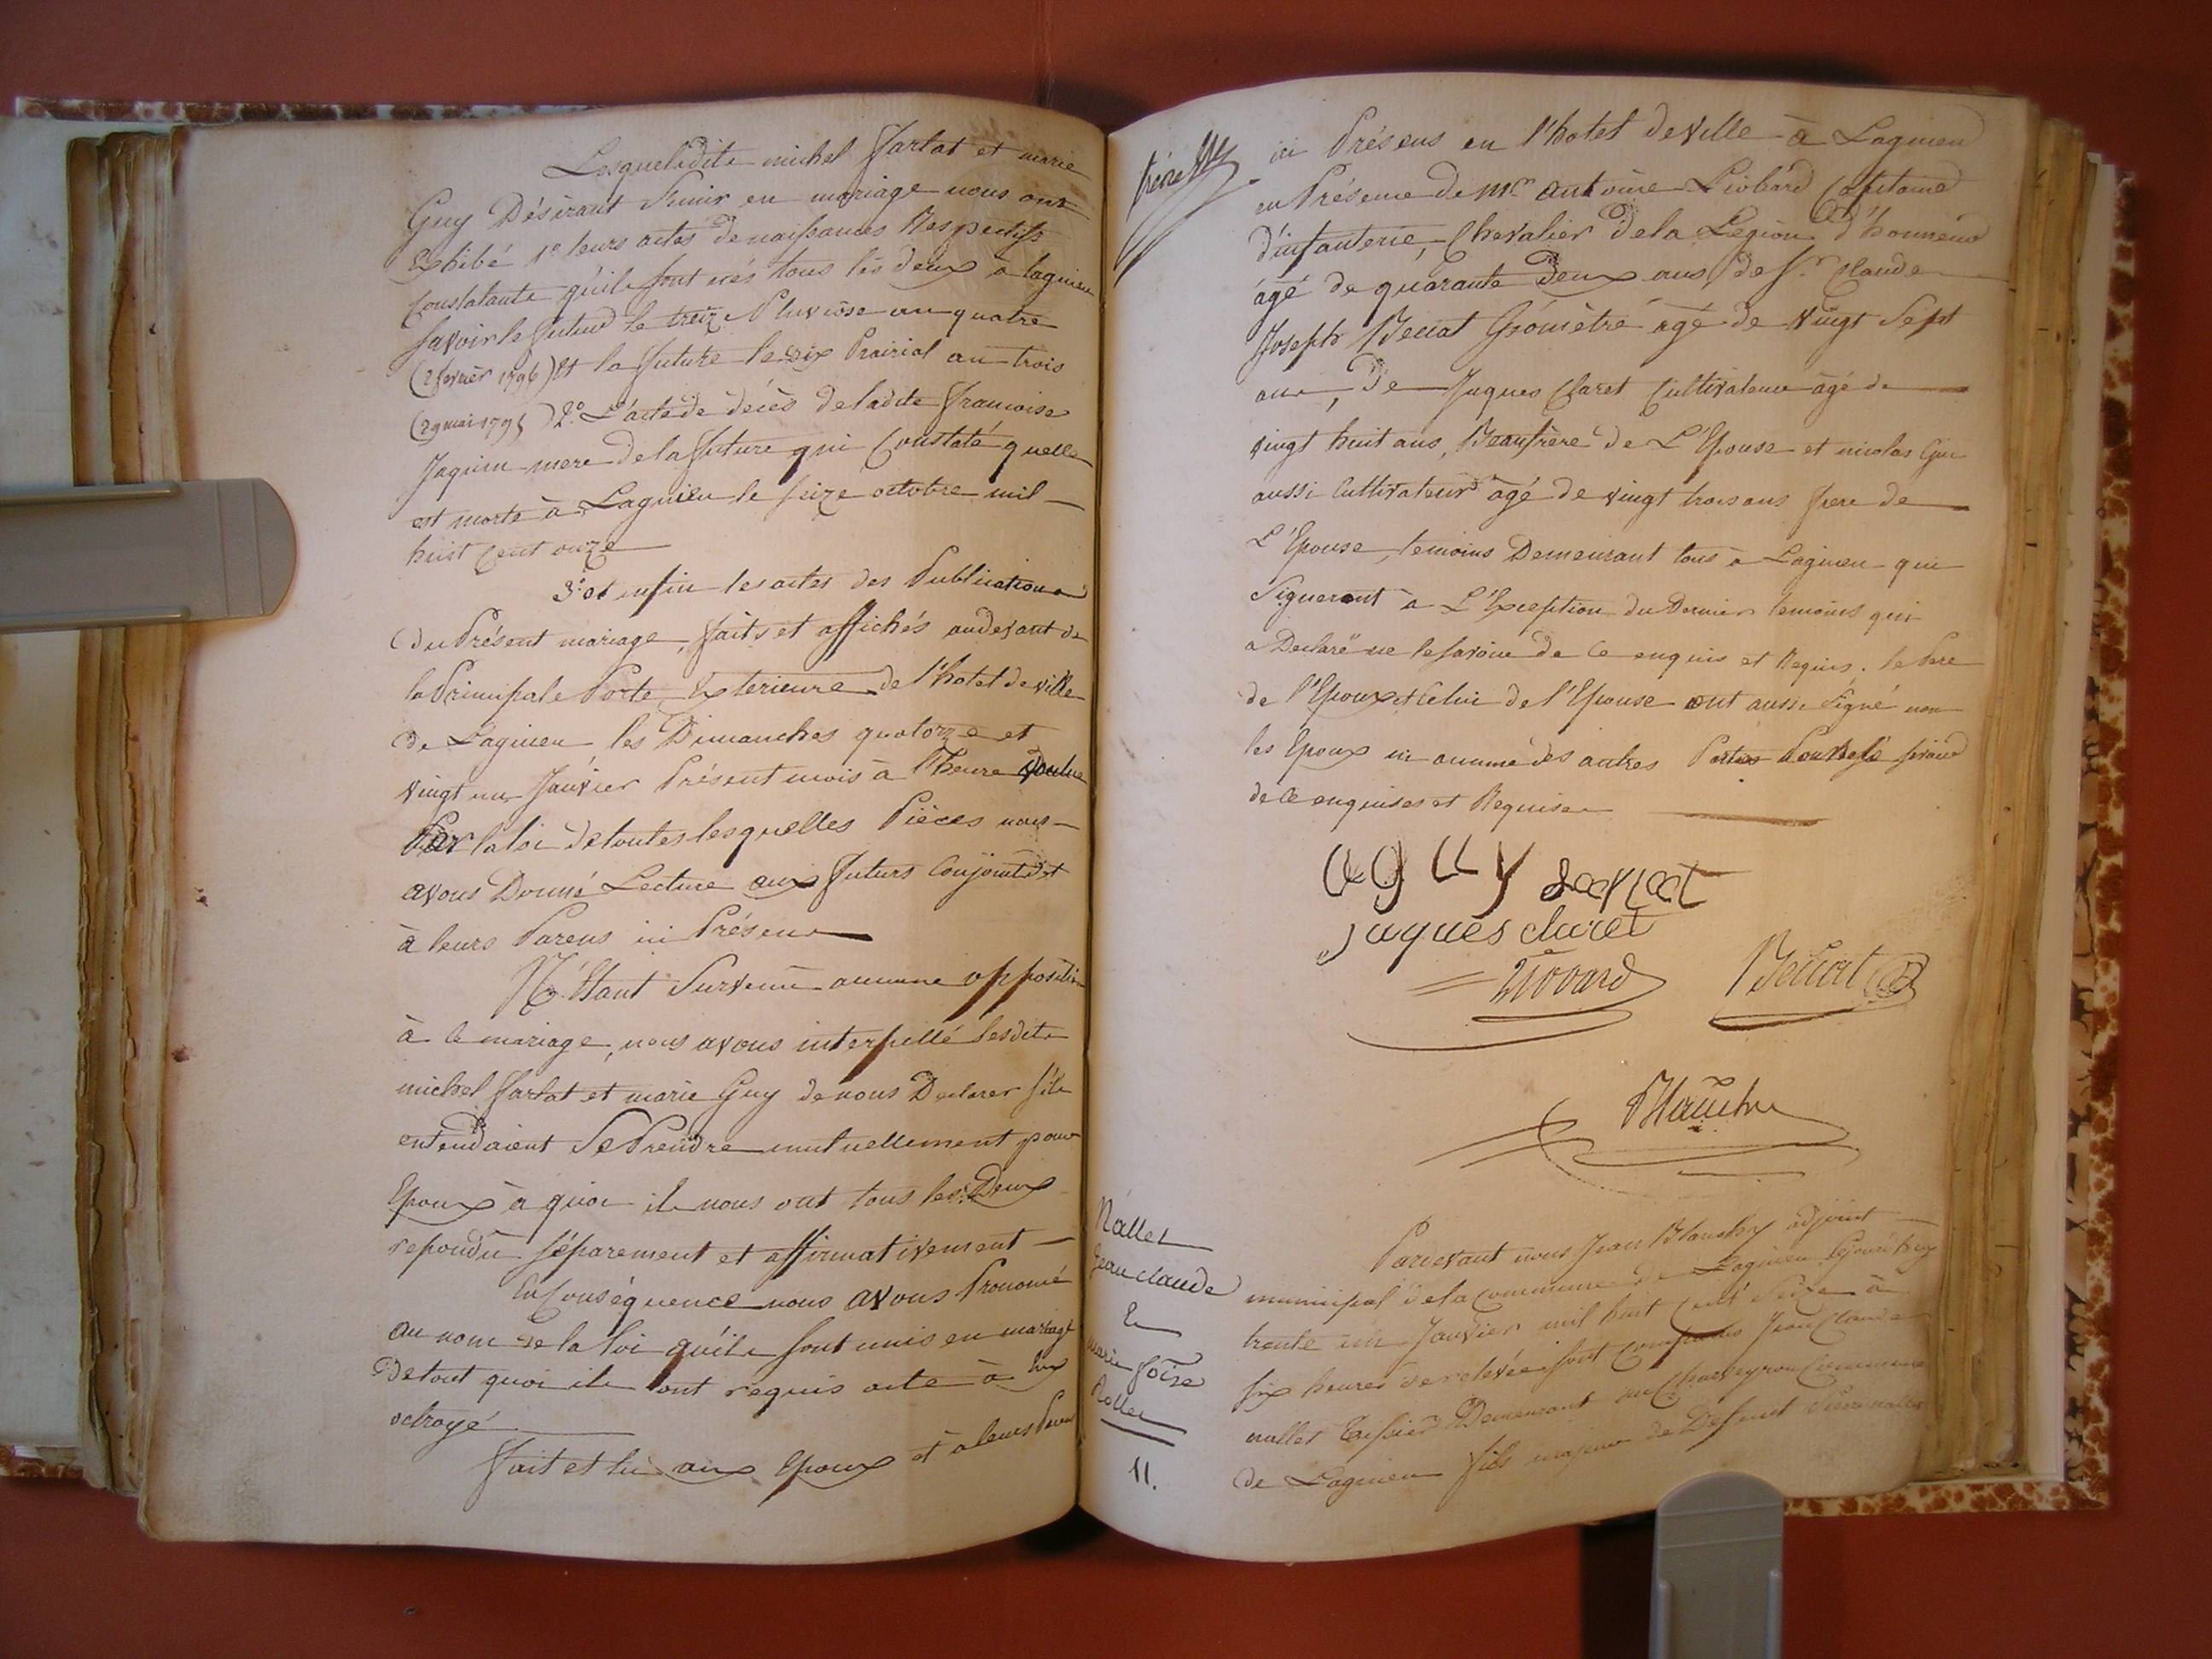 Lesquels dits michel Sarlat et marie
Guy Désirant S'unir en mariage nous ont
Exhibé 1º leurs actes de naissances Respectifs
Constatants qu'ils sont nés tous les deux à lagnieu
savoir le futur le treize Pluviôse an quatre
(2 fevrier 1796) et la future le dix Prairial an trois
(29 mai 1795) 2º. L'acte de décès de ladite francoise
Jaquin mere de la future qui Constate quelle
est morte à Lagnieu le seize octobre mil
huit cent onze
3º et enfin les actes des Publications
du Présent mariage, faits et affichés audevant de
la Principale Porte Exterieure de l'hotel de ville
de Lagnieu les Dimanches quatorze et
vingt un Janvier Présent mois à l'heure voulue
Par la loi de toutes lesquelles Pièces nous
avons Donné Lecture aux futurs Conjoints et
à leurs Parens ici Présens
N'Etant Survenu aucune opposition
à ce mariage, nous avons interpellé lesdits
michel Sarlat et marie Guy de nous Declarer s'ils
entendaient Se Prendre mutuellement pour
Epoux à quoi ils nous ont tous les Deux
repondu séparement et affirmativement
En Conséquence nous avons Prononcé
au nom de la loi qu'ils sont unis en mariage
De tout quoi ils ont requis acte à Eux
octroyé
fait et lu aux Epoux et à leurs Parens
ici Présens en l'hotel de ville à Lagnieu
en Présence de Mr antoine Liobard Capitaine
d'infanterie, Chevalier de la Légion d'honneur
âgé de quarante Deux ans de Sr. Claude
Joseph Géomètre âgé de vingt Sept
ans, De Jaques Claret Cultivateur âgé de
vingt huit ans, Beaufrère de L'Epouse et nicolas Guy
aussi Cultivateur âgé de vingt trois ans frere de
L'Epouse, temoins Demeurant tous à Lagnieu qui
Signeront à L'Exception du Dernier temoins qui
a Declaré ne le savoir de ce enquis et Requis. le Pere
de l'Epoux et Celui de l'Epouse ont aussi Signé non
les Epoux ni aucune des autres Parties Pour ne le savoir
de ce enquises et Requises
guy Sarlat
Jaques claret
Liobard
Blanchy
Nallet
Jean claude
Et
marie foise
Nallet
11.
Pardevant nous Jean Blanchy adjoint
municipal de la Commune de Lagnieu Cejourd'huy
trente un Janvier mil huit Cent Seize à
six heures de relevée sont comparus Jean Claude
nallet Demeurant au Chaveyron Commune
de Lagnieu fils majeur de Défunt Pierre nallet